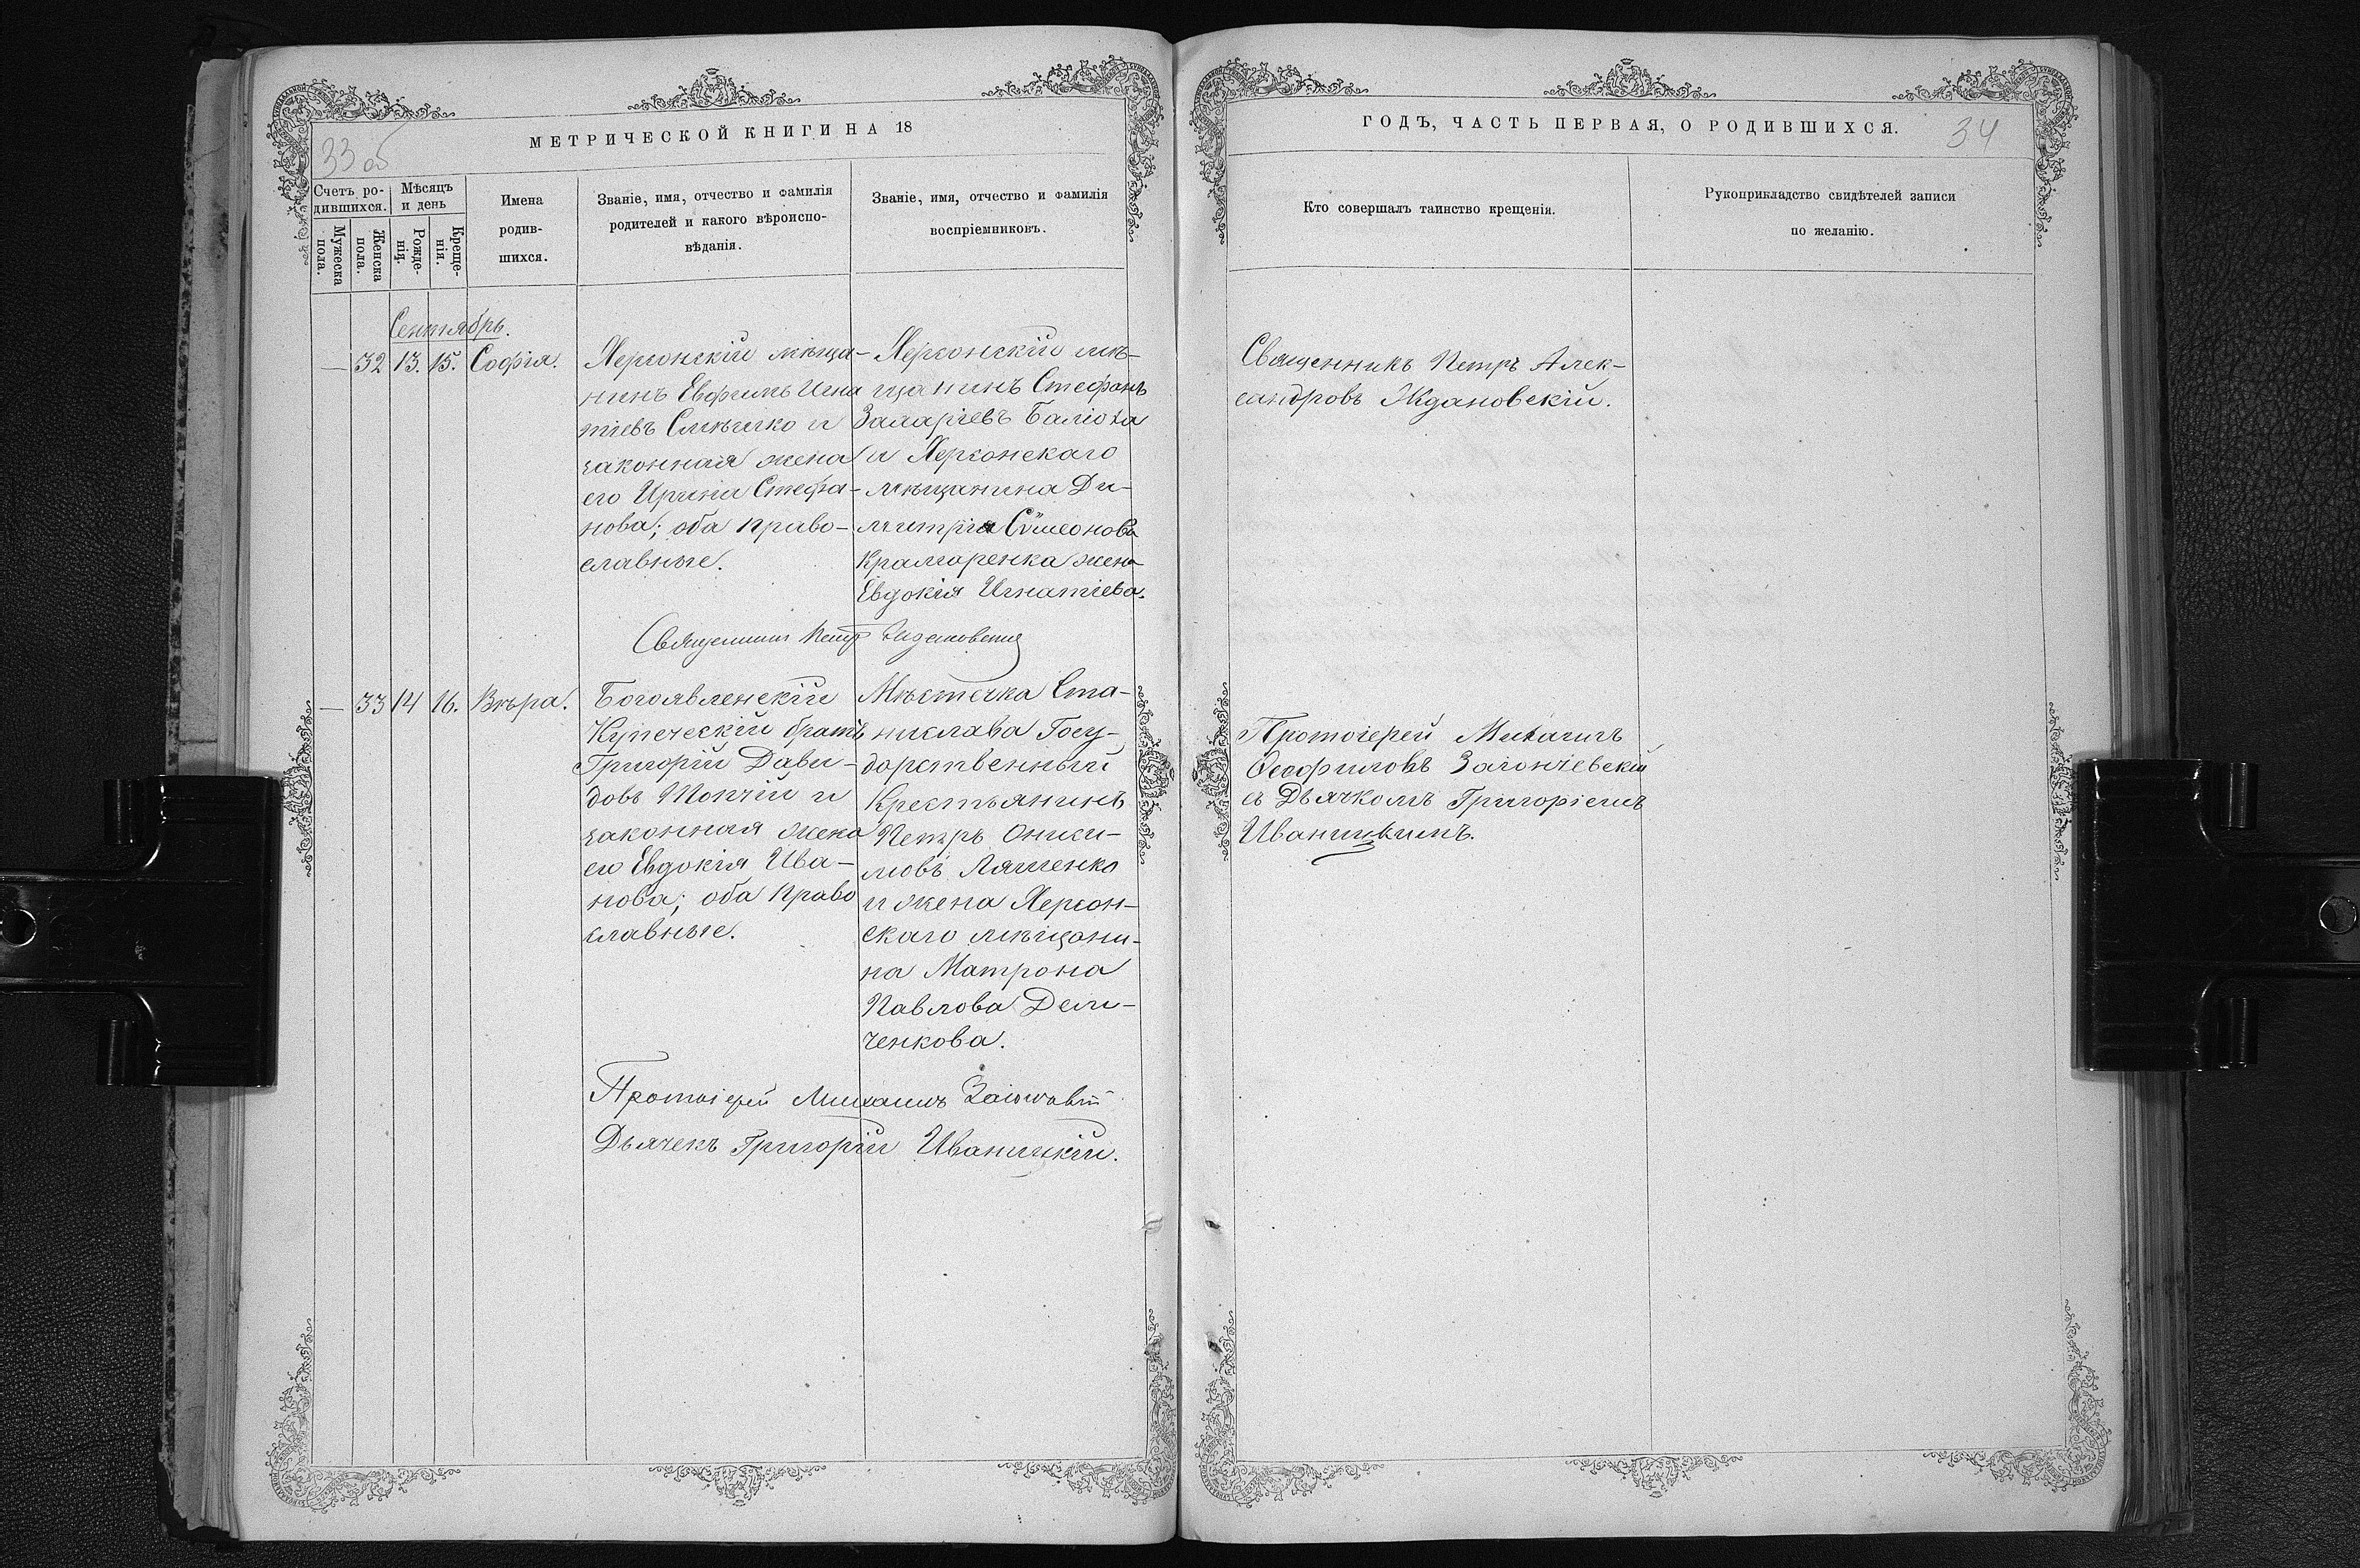 33 об
МЕТРИЧЕСКОЙ КНИГИ НА 18
Счетъ ро-
дившихся.
Мѣсяцъ
и день
Мужеска
пола.
Женска
пола.
Рожде-
нія.
Креще-
нія.
Имена
родив-
шихся.
Званіе, имя, отчество и фамилія
родителей и какого вѣроиспо-
вѣданія.
Званіе, имя, отчество и фамилія
воспріемниковъ.
Сентябрь.
— 32 13. 15. Софія.
Херсонскій мѣща-
нинъ Евфимъ Игна
тіевъ и
законная жена
его Ирина Стефа-
нова; оба право-
славные.
Херсонскій мѣ-
щанинъ Стефанъ
Захаріевъ Балюха
и Херсонскаго
мѣщанина Ди-
митрія Сѵмеонова
Крамаренка жена
Евдокія Игнатіева.
Священникъ Петръ Ждановскій
— 33 14 16. Вѣра.
Богоявленскій
Купеческій братъ
Григорій Дави-
довъ Топчій и
законная жена
его Евдокія Ива-
нова; оба право
славные.
Мѣстечка Ста-
нислава Госу-
дарственный
Крестьянинъ
Петръ Ониси-
мовъ Ляшенко
и жена Херсон-
скаго мѣщани-
на Матрона
Павлова Дем-
ченкова.
Протоіерей Михаилъ
Дьячекъ Григорій Иваницкій.
ГОДЪ, ЧАСТЬ ПЕРВАЯ, О РОДИВШИХСЯ.
34
Кто совершалъ таинство крещенія.
Рукоприкладство свидѣтелей записи
по желанію.
Священникъ Петръ Алек-
сандровъ Ждановскій.
Протоіерей Михаилъ
Ѳеофиловъ
съ Дьячкомъ Григоріемъ
Иваницкимъ.